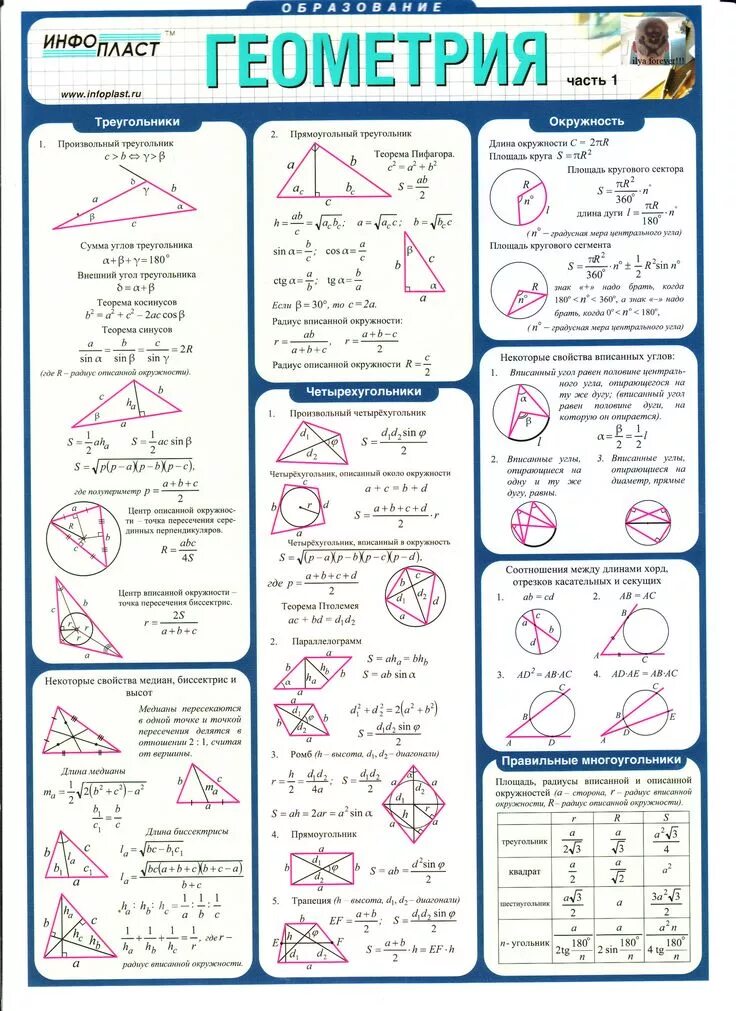 ОБРАЗОВАНИЕ
ИНФО ПЛАСТ™
www.infoplast.ru
ГЕОМЕТРИЯ
часть 1
ilya forever!!!
Треугольники
1. Произвольный треугольник
c > b ⇔ γ > β
δ γ b a α β c
Сумма углов треугольника
α+β+γ=180°
Внешний угол треугольника
δ = α+β
Теорема косинусов
b² = a² + c² – 2ac cos β
Теорема синусов
a/sin α = b/sin β = c/sin γ = 2R
(где R – радиус описанной окружности).
c hₐ b β a
S = 1/2 ahₐ S = 1/2 ac sin β
S = √p(p–a)(p–b)(p–c),
где полупериметр p = (a+b+c)/2
Центр описанной окружнос-
ти – точка пересечения сере-
динных перпендикуляров.
R = abc/4S
Центр вписанной окружности –
точка пересечения биссектрис.
r = 2S/(a+b+c)
Некоторые свойства медиан, биссектрис и
высот
Медианы пересекаются
в одной точке и точкой
пересечения делятся в
отношении 2 : 1, считая
от вершины.
Длина медианы
mₐ = 1/2 √2(b² + c²) – a²
b₁/c₁ = b/c
b mₐ c a
Длина биссектрисы
lₐ = √bc – b₁c₁
lₐ = √bc(a+b+c)(b+c–a) / (b+c)
b lₐ c b₁ c₁
hₐ : h_b : h_c = 1/a : 1/b : 1/c
1/hₐ + 1/h_b + 1/h_c = 1/r, где r –
радиус вписанной окружности.
2. Прямоугольный треугольник
Теорема Пифагора.
c² = a² + b²
S = ab/2
a h b a_c b_c c
h = ab/c = √a_c b_c; a = √a_c c; b = √b_c c
sin α = b/c; cos α = a/c
ctg α = a/b; tg α = b/a
β c b α a
Если β = 30°, то c = 2a.
Радиус вписанной окружности:
r = ab/(a+b+c), r = (a+b–c)/2
Радиус описанной окружности R = c/2
Четырехугольники
1. Произвольный четырёхугольник
d₁ φ d₂
S = d₁d₂ sin φ / 2
Четырёхугольник, описанный около окружности
a + c = b + d
S = (a+b+c+d)/2 · r
Четырёхугольник, вписанный в окружность
S = √(p – a)(p – b)(p – c)(p – d),
где p = (a+b+c+d)/2
Теорема Птолемея
ac + bd = d₁d₂
2. Параллелограмм
S = ahₐ = bh_b
S = ab sin α
d₁² + d₂² = 2(a² + b²)
S = d₁d₂ sin φ / 2
3. Ромб (h – высота, d₁, d₂ – диагонали)
r = h/2 = d₁d₂/4a S = d₁d₂/2
S = ah = 2ar = a² sin α
4. Прямоугольник
S = ab = d² sin φ / 2
5. Трапеция (h – высота, d₁, d₂ – диагонали)
EF = (a+b)/2; S = d₁d₂ sin φ / 2
S = (a+b)/2 · h = EF · h
Окружность
Длина окружности C = 2πR
Площадь круга S = πR²
Площадь кругового сектора
S = πR²/360° · n°
длина дуги l = πR/180° · n°
(n° – градусная мера центрального угла)
Площадь кругового сегмента
S = πR²/360° · n° ± 1/2 R² sin n°
знак «+» надо брать, когда
180° < n° < 360°, а знак «–» надо
брать, когда 0° < n° < 180°,
(n° – градусная мера центрального угла)
Некоторые свойства вписанных углов:
1. Вписанный угол равен половине централь-
ного угла, опирающегося на
ту же дугу; (вписанный угол
равен половине дуги, на
которую он опирается).
α = β/2 = 1/2 l
2. Вписанные углы,
опирающиеся на
одну и ту же
дугу, равны.
3. Вписанные углы,
опирающиеся на
диаметр, прямые
Соотношения между длинами хорд,
отрезков касательных и секущих
1. ab = cd 2. AB = AC
3. AD² = AB·AC 4. AD·AE = AB·AC
Правильные многоугольники
Площадь, радиусы вписанной и описанной
окружностей (a – сторона, r – радиус вписанной
окружности, R – радиус описанной окружности).
r R S
треугольник a/2√3 a/√3 a²√3/4
квадрат a/2 a/√2 a²
шестиугольник a√3/2 a 3a²√3/2
n- угольник a/(2tg 180°/n) a/(2 sin 180°/n) a²n/(4 tg 180°/n)